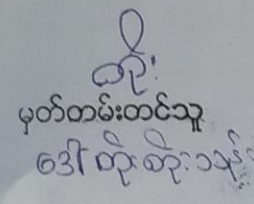 မှတ်တမ်းတင်သူ
ဒေါ်တိုးတိုးသန်း